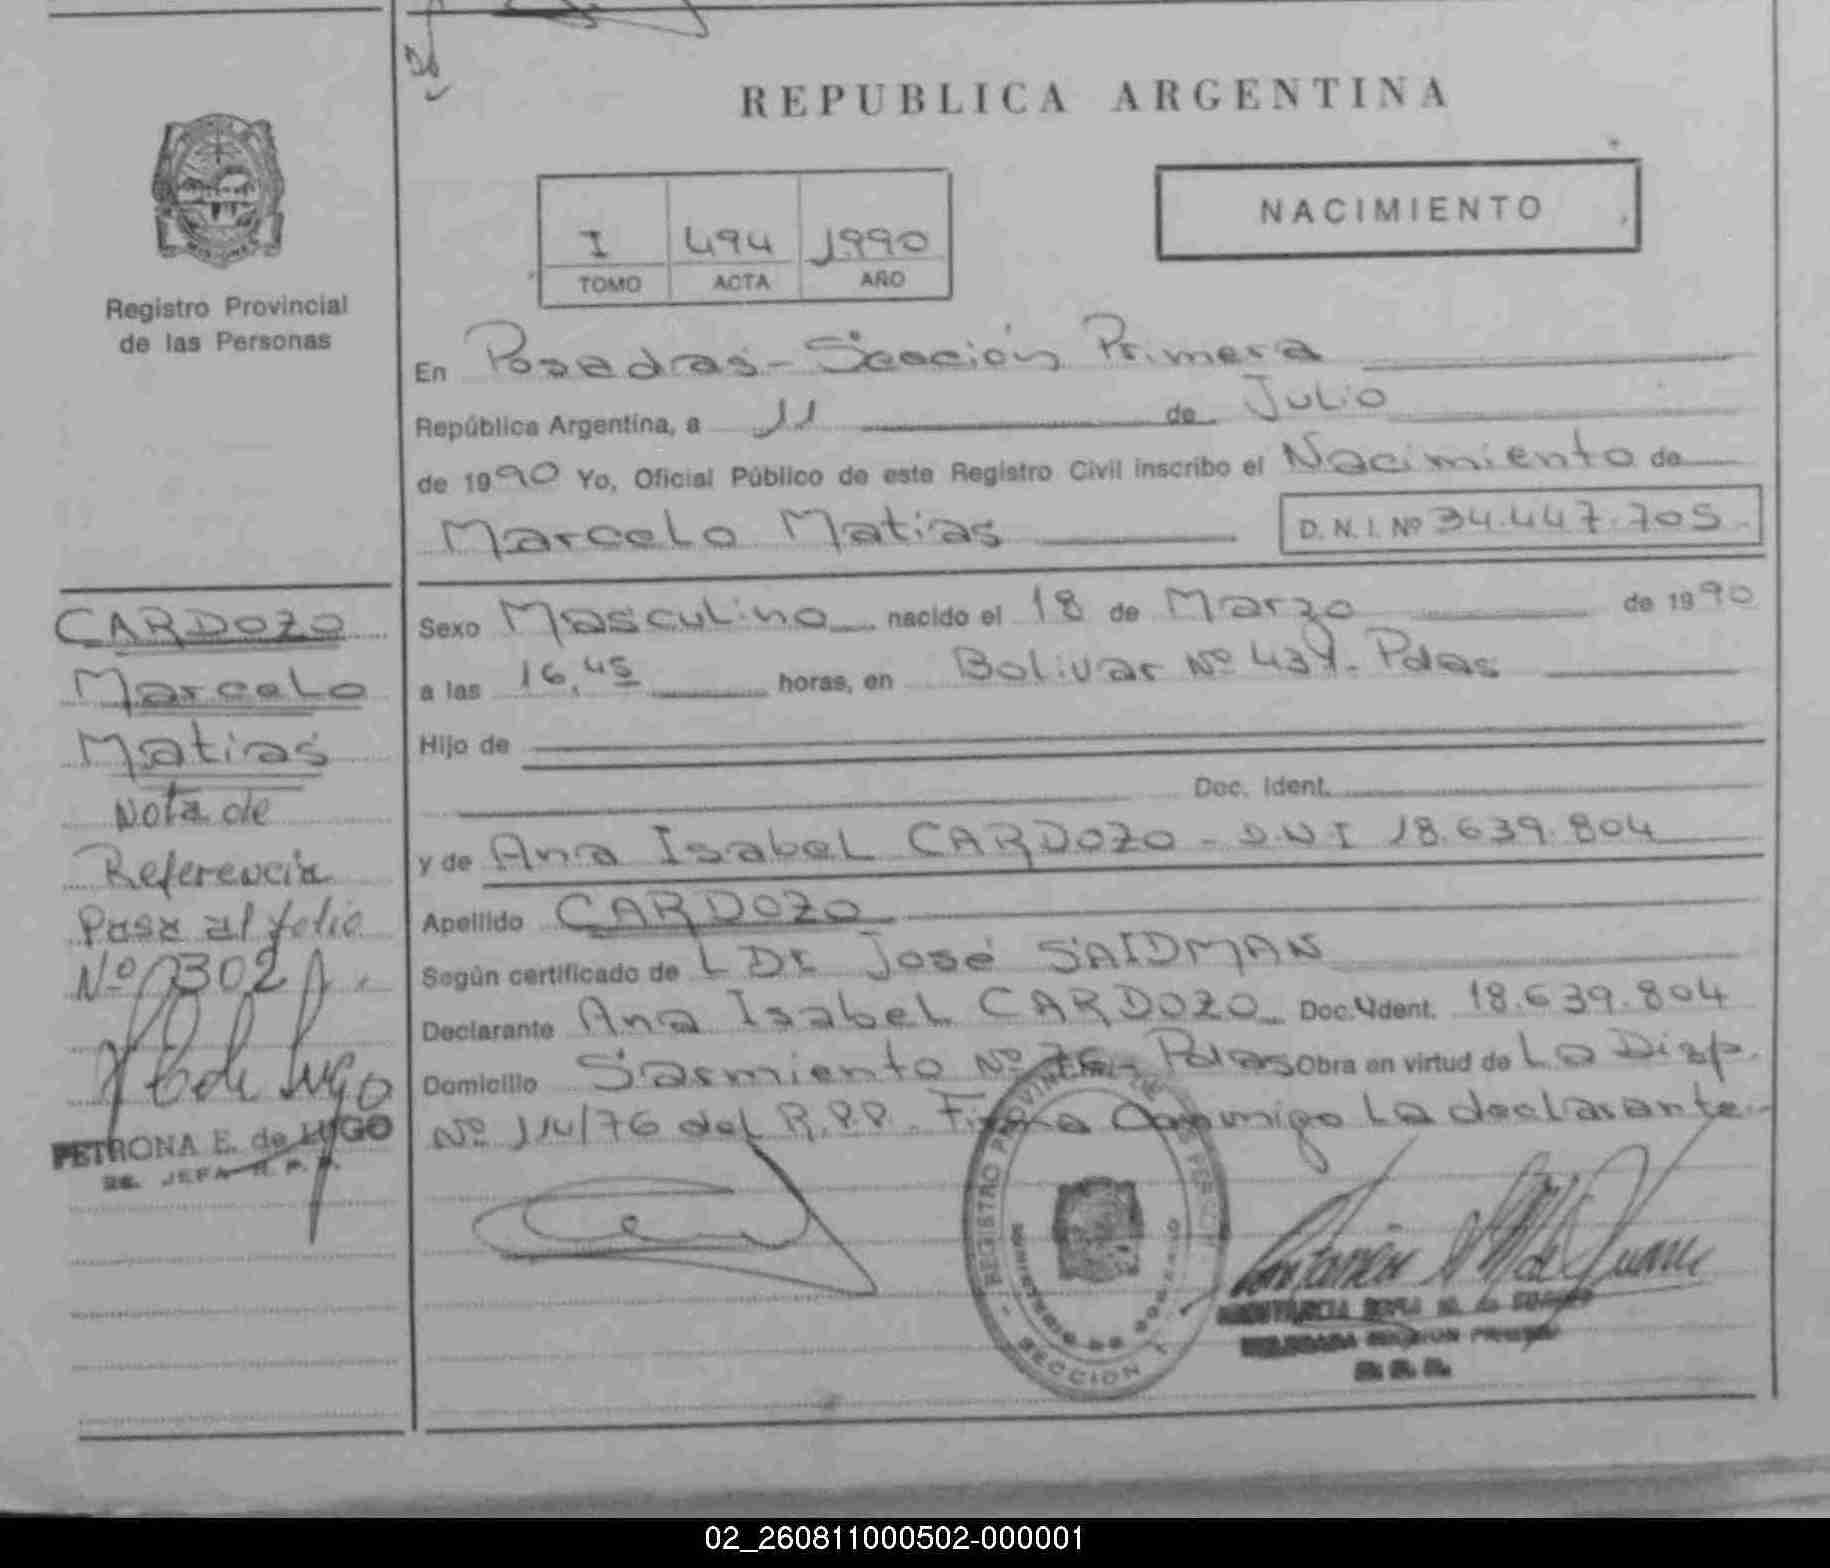 REPUBLICA ARGENTINA
NACIMIENTO
I 494 1990
TOMO ACTA AÑO
Registro Provincial
de las Personas
En Posadas - Sección Primera
República Argentina, a 11 de Julio
de 1990 Yo, Oficial Público de este Registro Civil inscribo el Nacimiento de
Marcelo Matias D.N.I. Nº 34.447.705
CARDOZO
Marcelo
Matias
Nota de
Referencia
Pasa al folio
Nº 302
PETRONA E. de LUGO
2a. JEFA R. P. P.
Sexo Masculino nacido el 18 de Marzo de 1990
a las 16,45 horas, en Bolivar Nº Pdas
Hijo de
Doc. Ident.
y de Ana Isabel CARDOZO - D.N.I 18.639.804
Apellido CARDOZO
Según certificado de L DR José SAIDMAN
Declarante Ana Isabel CARDOZO Doc. Ident. 18.639.804
Domicilio Sarmiento Nº Pdas Obra en virtud de La Disp.
Nº 114/76 del R.P.P. Firma Conmigo La declarante.-
REGISTRO PROVINCIAL DE LAS PERSONAS
SECCION 1
02_260811000502-000001